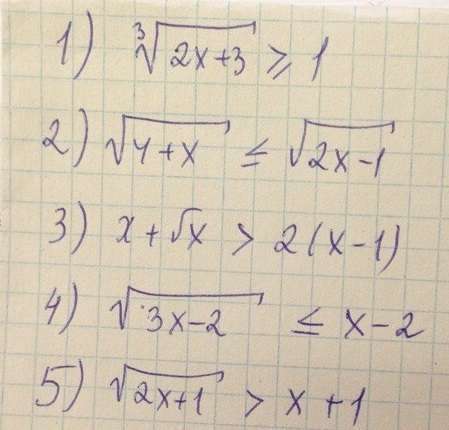 1) ∛(2x+3) ≥ 1
2) √(4+x) ≤ √(2x-1)
3) x+√x > 2(x-1)
4) √(3x-2) ≤ x-2
5) √(2x+1) > x+1